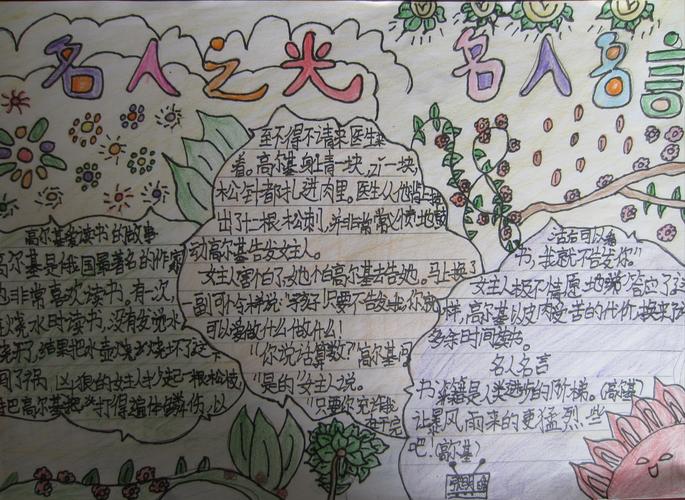 名人之光
名人名言
高尔基爱读书的故事
高尔基是俄国最著名的作家
也非常喜欢读书。有一次,
烧水时读书,没有发觉水
烧开了,结果把水壶烧坏了
闯了祸,凶狠的女主人抄起一根松枝
把高尔基打得遍体鳞伤,以
至不得不请来医生
看。高尔基身上青一块,一块,
松针都扎进肉里。医生从他背上
出了十二根松刺,并非常激动
动高尔基告发女主人。
女主人害怕了,她怕高尔基去告她。马上换了
一副可怜样说:“孩子!只要不告发我,你就
可以爱做什么做什么!
“你说话算数?”高尔基问
“是的”女主人说。
“只要你允许我
在干完
活后可以看
书,我就不告发你”
女主人极不情愿地答应了这
样,高尔基以皮肉受苦的代价,换来了
多余时间读书。
名人名言
书籍是人类进步的阶梯。(高尔基)
让暴风雨来的更猛烈些
吧!(高尔基)